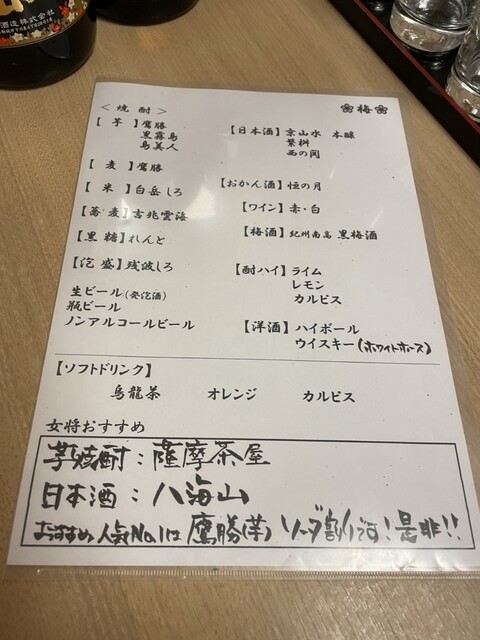 酒造株式会社
＜焼 酎＞
❀梅❀
【 芋 】鷹勝
黒霧島
島美人
【 麦 】鷹勝
【 米 】白岳しろ
【蕎麦】吉兆雲海
【黒糖】れんと
【泡盛】残波しろ
生ビール(発泡酒)
瓶ビール
ノンアルコールビール
【日本酒】京山水 本醸
繁桝
西の関
【おかん酒】恒の月
【ワイン】赤・白
【梅酒】紀州南高 黒梅酒
【酎ハイ】ライム
レモン
カルピス
【洋酒】ハイボール
ウイスキー(ホワイトホース)
【ソフトドリンク】
烏龍茶 オレンジ カルピス
女将おすすめ
芋焼酎：薩摩茶屋
日本酒：八海山
おすすめ人気No.1は鷹勝(芋)ソーダ割り 是非!!